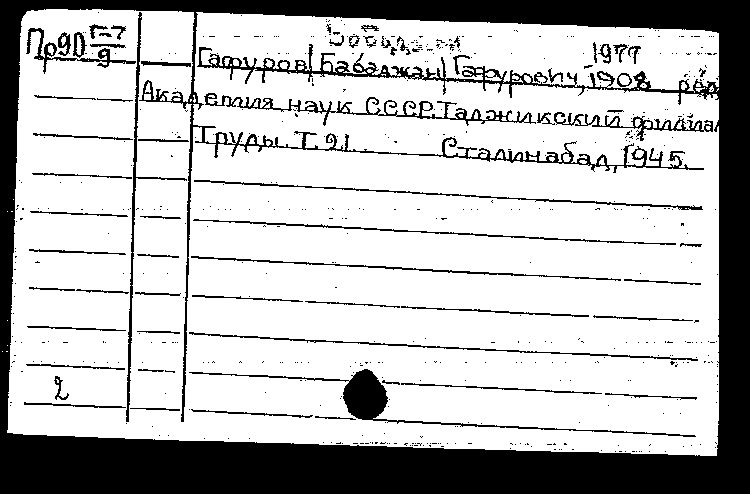 Бободжан
Пр90 Г-7/9
1977
Гафуров Бабаджан Гафурович, 1908 ред
Академия наук СССР. Таджикский филиал
Труды. Т. 21. Сталинабад, 1945.
2